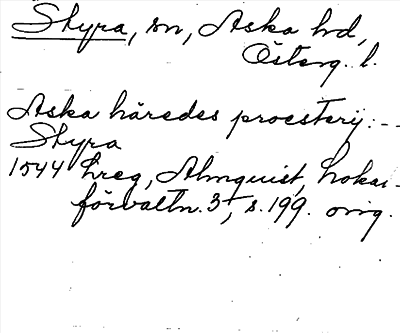 Styra, sn, Aska hd,
Österg. l.
Aska häredes proesterij: - -
Styra
1544 hreg, Almquist, Lokal-
förvaltn. 3, s. 199. orig.